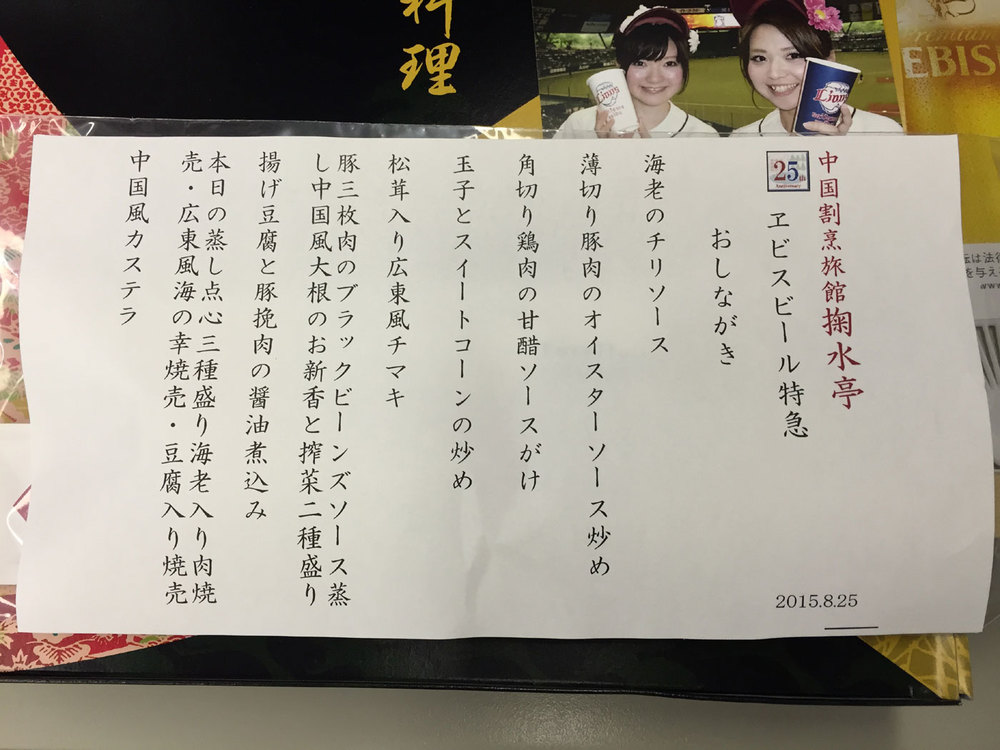 料理
Lions
Lions
EBIS
中国割烹旅館掬水亭
25th
Anniversary
ヱビスビール特急
おしながき
海老のチリソース
薄切り豚肉のオイスターソース炒め
角切り鶏肉の甘醋ソースがけ
玉子とスイートコーンの炒め
松茸入り広東風チマキ
豚三枚肉のブラックビーンズソース蒸
し中国風大根のお新香と搾菜二種盛り
揚げ豆腐と豚挽肉の醤油煮込み
本日の蒸し点心三種盛り海老入り肉焼
売・広東風海の幸焼売・豆腐入り焼売
中国風カステラ
2015.8.25